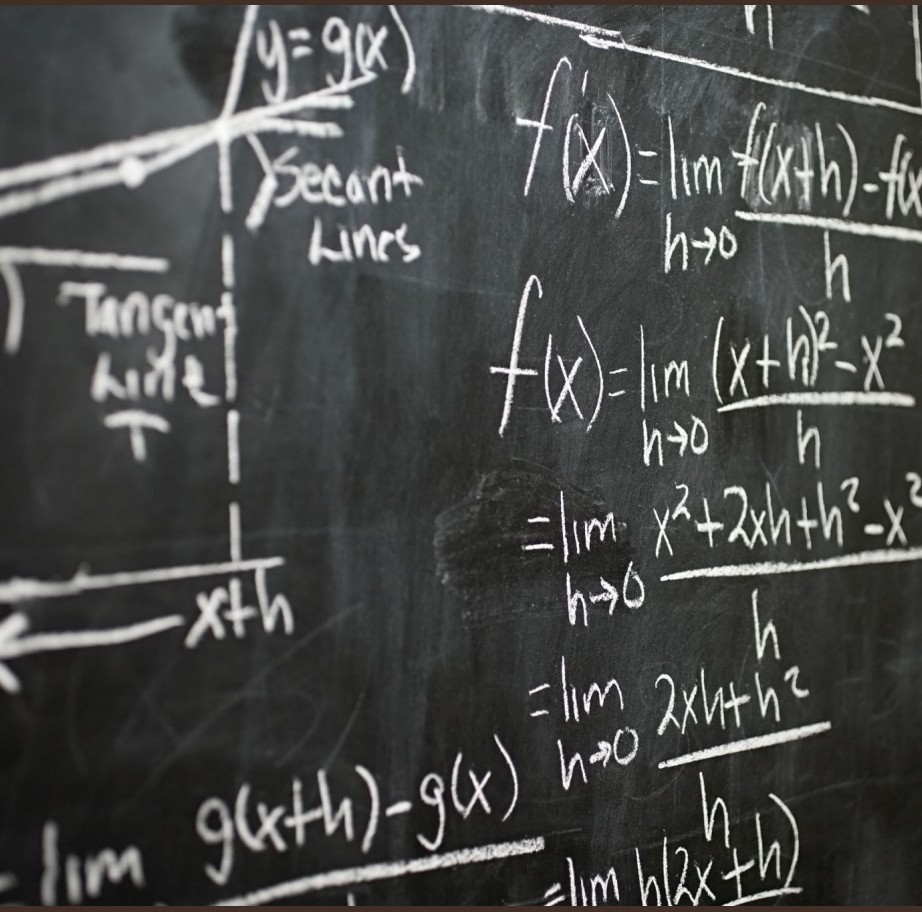 y=g(x)
Secant
Lines
Tangent
Line
T
x+h
lim g(x+h)-g(x)
f'(x)=lim h→0 f(x+h)-f(x / h
f(x)=lim h→0 (x+h)²-x² / h
=lim h→0 x²+2xh+h²-x² / h
=lim h→0 2xh+h² / h
=lim h(2x+h)